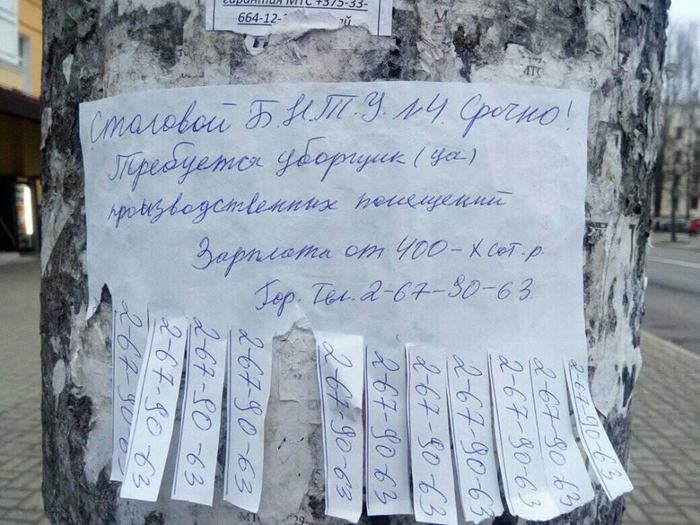 гарантия МТС +375-33-
664-12-
Столовой Б.Н.Т.У. №4 Срочно!
Требуется уборщик (ца)
производственных помещений
Зарплата от 400-х сот. р.
Гор. Тел. 2-67-90-63
2-67-90-63
2-67-90-63
2-67-90-63
2-67-90-63
2-67-90-63
2-67-90-63
2-67-90-63
2-67-90-63
2-67-90-63
2-67-90-63
2-67-90-63